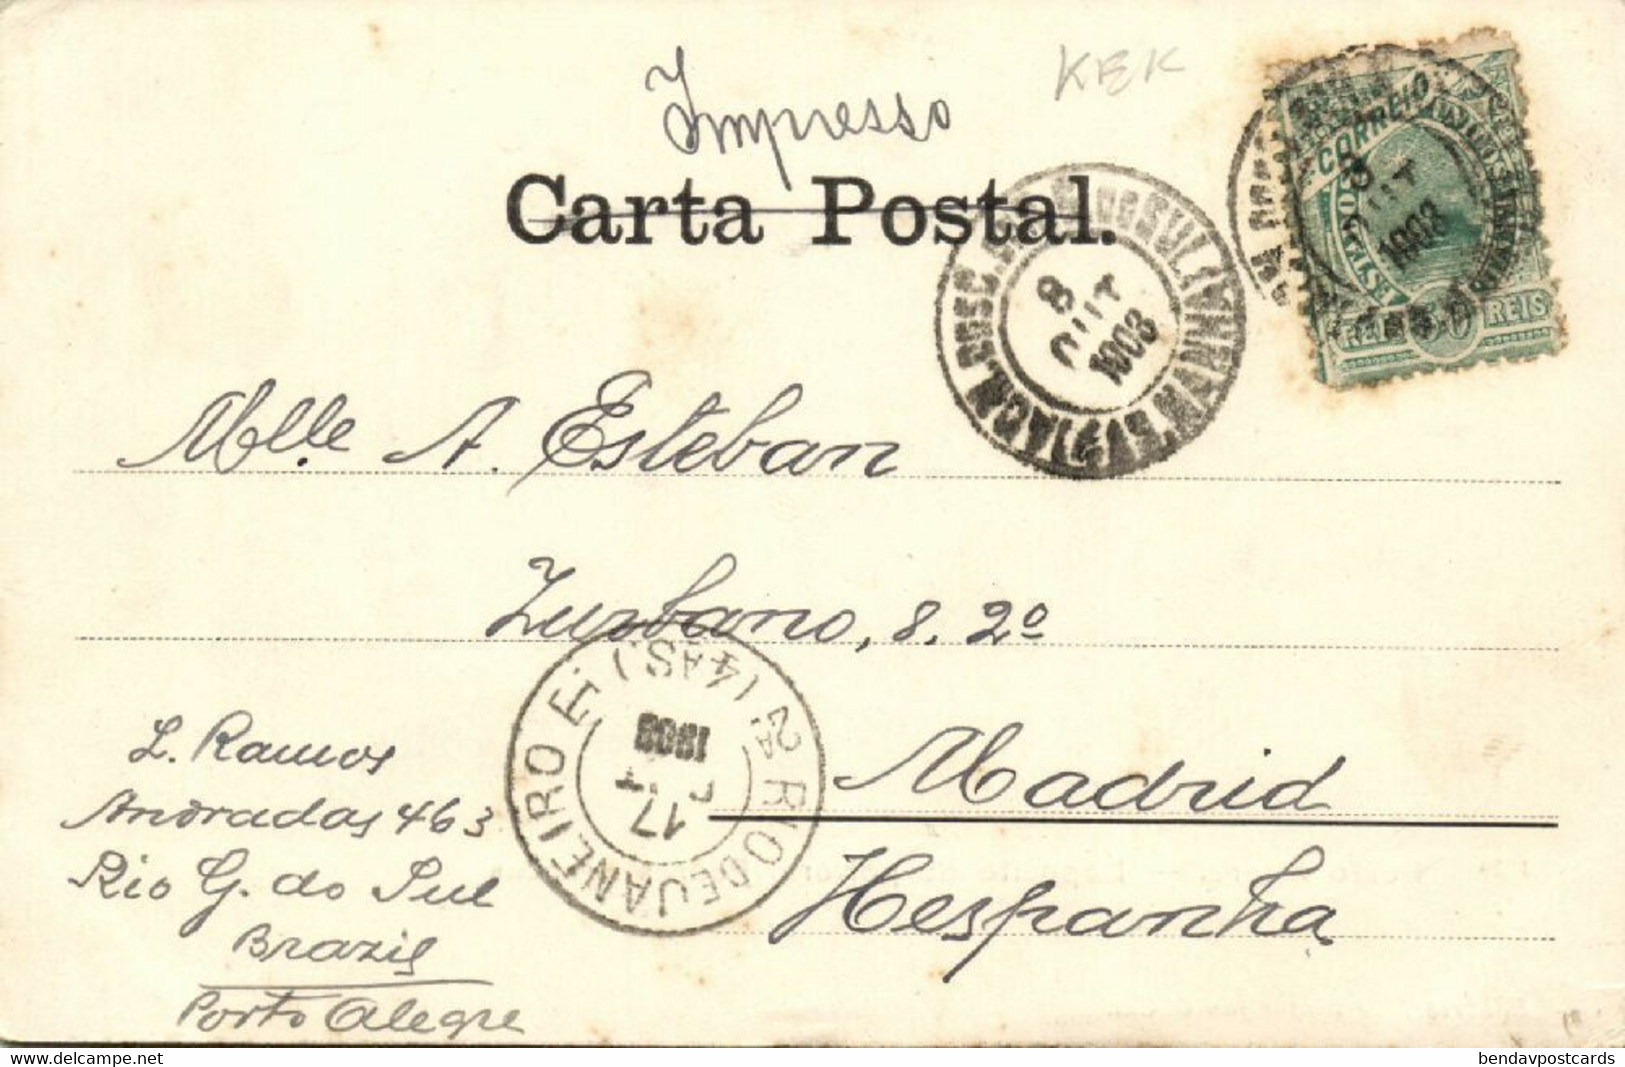 Impresso
KEK
Carta Postal.
CORREIO
REIS 50 REIS
8
OUT
1908
8
OUT
1908
Mlle A. Esteban
Zurbano, 8. 2º
Madrid
Hespanha
2ª RIO DE JANEIRO (4 AS.)
17
1908
L. Ramos
Andradas 463
Rio G. do Sul
Brazil
Porto Alegre
delcampe.net
bendavpostcards